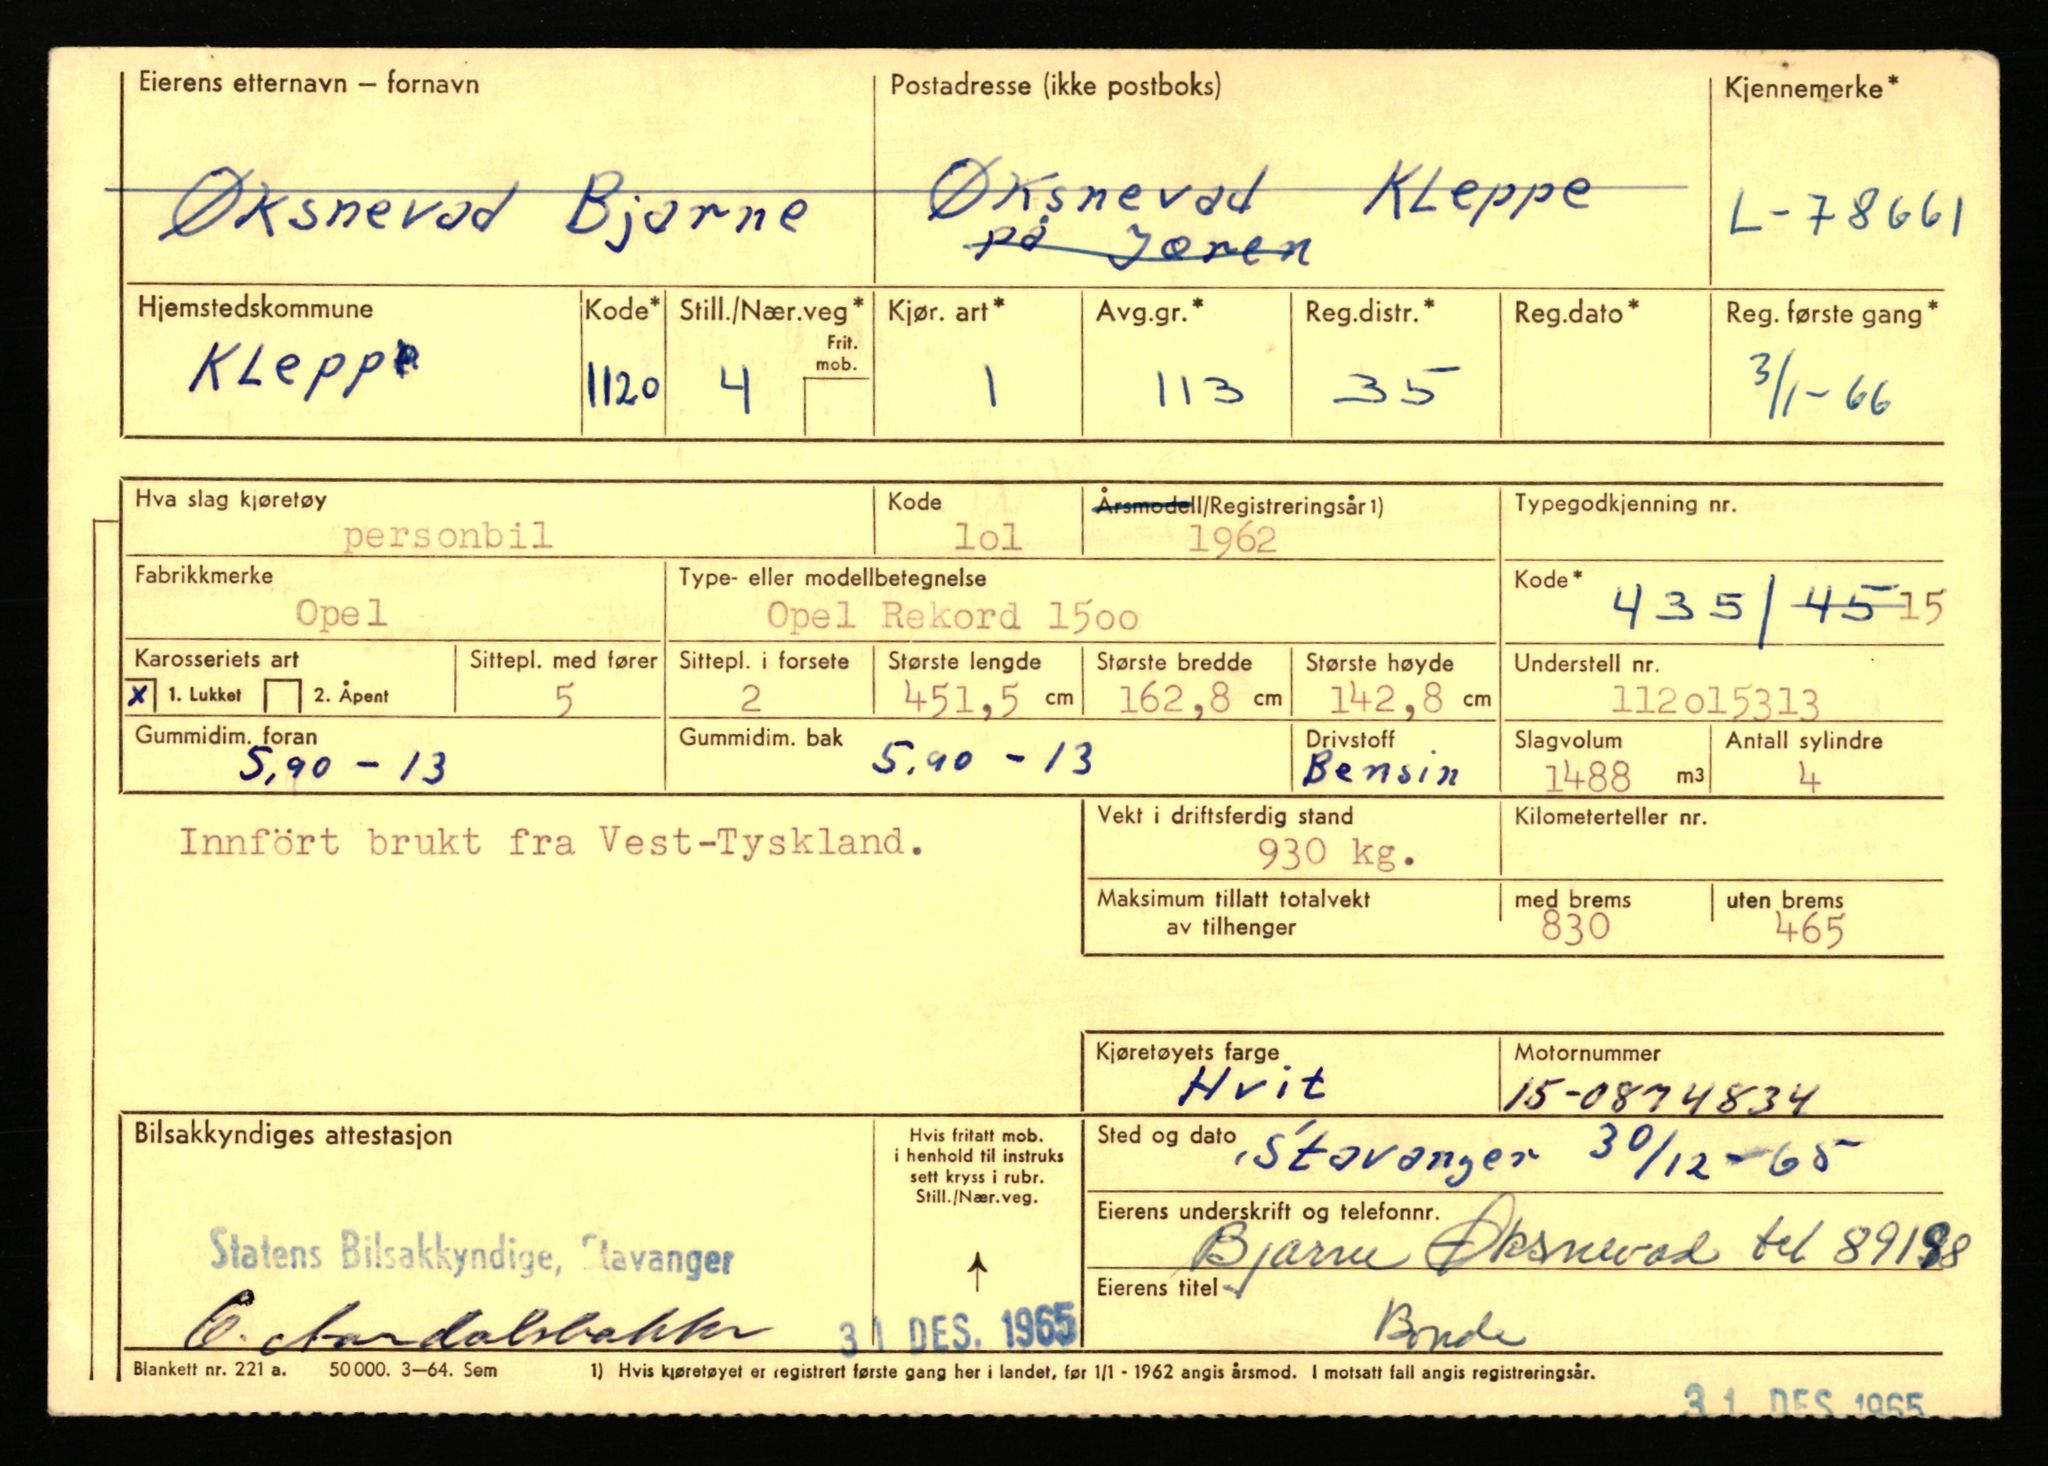 Eierens etternavn – fornavn Postadresse (ikke postboks) Kjennemerke*
Øksnevad Bjarne Øksnevad Kleppe L-78661
på Jæren
Hjemstedskommune Kode* Still./Nær.veg* Kjør. art* Avg.gr.* Reg.distr.* Reg.dato* Reg. første gang*
Frit.
mob.
Kleppe 1120 4 1 113 35 3/1-66
Hva slag kjøretøy Kode Årsmodell/Registreringsår1) Typegodkjenning nr.
personbil lol 1962
Fabrikkmerke Type- eller modellbetegnelse Kode*
Opel Opel Rekord 15oo 435/ 45 15
Karosseriets art Sittepl. med fører Sittepl. i forsete Største lengde Største bredde Største høyde Understell nr.
x 1. Lukket 2. Åpent 5 2 451,5 cm 162,8 cm 142,8 cm 112o15313
Gummidim. foran Gummidim. bak Drivstoff Slagvolum Antall sylindre
5,90 - 13 5,90 - 13 Bensin 1488 m3 4
Vekt i driftsferdig stand Kilometerteller nr.
Innfört brukt fra Vest-Tyskland. 930 kg.
Maksimum tillatt totalvekt med brems uten brems
av tilhenger 830 465
Kjøretøyets farge Motornummer
Hvit 15-0874834
Bilsakkyndiges attestasjon Hvis fritatt mob. Sted og dato Stavanger 30/12-65
i henhold til instruks
sett kryss i rubr.
Still./Nær.veg.
Eierens underskrift og telefonnr.
Statens Bilsakkyndige, Stavanger Bjarne Øksnevad tel 89198
Eierens titel
31 DES. 1965 Bonde
Blankett nr. 221 a. 50 000. 3–64. Sem 1) Hvis kjøretøyet er registrert første gang her i landet, før 1/1 - 1962 angis årsmod. I motsatt fall angis registreringsår.
31 DES 1965